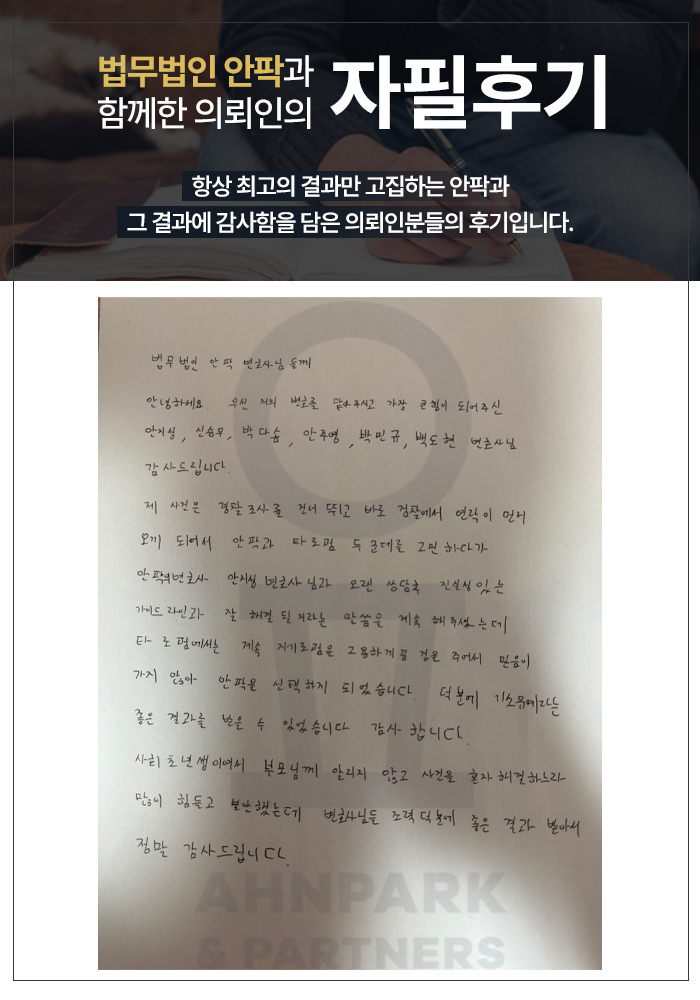 법무법인 안팍과
함께한 의뢰인의
자필후기
항상 최고의 결과만 고집하는 안팍과
그 결과에 감사함을 담은 의뢰인분들의 후기입니다.
법무법인 안팍 변호사님들께
안녕하세요. 우선 저의 변호를 맡아주시고 가장 큰 힘이 되어주신
안지성, 신승우, 박다솜, 안주영, 박민규, 백도현 변호사님
감사드립니다.
제 사건은 경찰조사를 건너 뛰고 바로 검찰에서 연락이 먼저
오게 되어서 안팍과 타로펌 두군데를 고민하다가
안팍의변호사 안지성 변호사님과 오랜 상담후 진실성있는
가이드라인과 잘 해결 된거라는 말씀을 계속 해주셨는데
타로펌에서는 계속 자기로펌을 고용하게끔 겁을 주어서 믿음이
가지 않아 안팍을 선택하지 되었습니다. 덕분에 기소유예라는
좋은 결과를 받을 수 있었습니다 감사합니다.
사회초년생이여서 부모님께 알리지 않고 사건을 혼자 해결하느라
많이 힘들고 불안했는데 변호사님들 조력 덕분에 좋은 결과 받아서
정말 감사드립니다.
AHNPARK
& PARTNERS